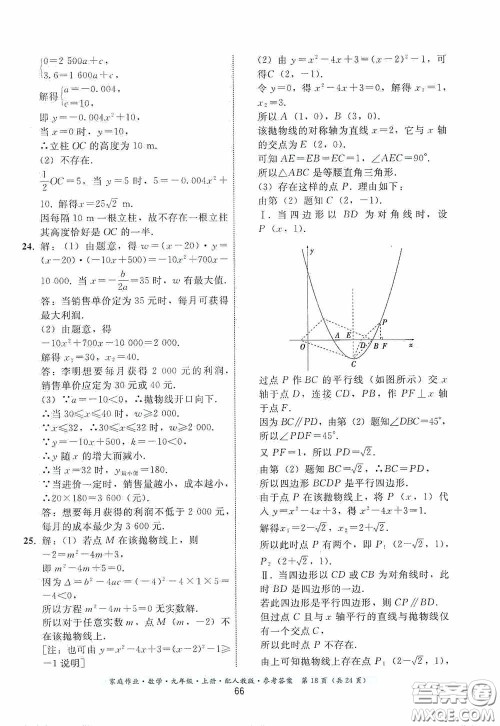 {0=2 500a+c,
3.6=100a+c,
解得{a=-0.004,
c=10,
即 y=-0.004x²+10.
当 x=0 时,y=10.
∴立柱 OC 的高度为 10 m.
(2) 不存在.
1/2 OC=5,当 y=5 时,5=-0.004x²+
10. 解得 x=25√2 m.
因每隔 10 m 一根立柱,故不存在一根立柱
其高度恰好是 OC 的一半.
24. 解:(1) 由题意,得 w=(x-20)·y=
(x-20)·(-10x+500)=-10x²+700x-
10 000. 当 x=-b/2a=35 时,w 有最大值.
答:当销售单价定为 35 元时,每月可获得
最大利润.
(2) 由题意,得
-10x²+700x-10 000=2 000.
解得 x₁=30,x₂=40.
答:李明想要每月获得 2 000 元的利润,
销售单价应定为 30 元或 40 元.
(3) ∵a=-10<0,∴抛物线开口向下.
∴当 30≤x≤40 时,w≥2 000.
∵x≤32,∴当 30≤x≤32 时,w≥2 000.
∵y=-10x+500,k=-10<0,
∴y 随 x 的增大而减小.
∴当 x=32 时,y最小值=180.
∵当进价一定时,销售量越小,成本越小,
∴20×180=3 600(元).
答:想要每月获得的利润不低于 2 000 元,
每月的成本最少为 3 600 元.
25. 解:(1) 若点 M 在该抛物线上,则
-2=m²-4m+3,
即 m²-4m+5=0.
因为 Δ=b²-4ac=(-4)²-4×1×5=
-4<0,
所以方程 m²-4m+5=0 无实数解.
所以对于任意实数 m,点 M(m,-2) 不
在该抛物线上.
[注:也可由 y=x²-4x+3=(x-2)²-1≥
-1 说明]
(2) 由 y=x²-4x+3=(x-2)²-1,可
得C(2,-1).
令 y=x²-4x+3=0,解得 x₁=1,
x₂=3.
所以 A(1,0),B(3,0).
该抛物线的对称轴为直线 x=2,它与 x 轴
的交点为 E(2,0).
可知 AE=EB=EC=1,∠AEC=90°,
所以△ABC 是等腰直角三角形.
(3) 存在这样的点 P. 理由如下:
由第(2)题知 C(2,-1).
Ⅰ. 当四边形以 BD 为对角线时,设
P(x,1).
y
P
O
A
E
D
B
F
x
C
过点 P 作 BC 的平行线(如图所示)交 x
轴于点 D,连接 CD,PB,作 PF⊥x 轴
于点 F.
因为 BC∥PD,由第(2)题知∠DBC=45°,
所以∠PDF=45°.
所以 DF=PF=1,所以 PD=√2.
由第(2)题可知 BC=√2. ∴BC=PD.
所以四边形 BCDP 是平行四边形.
由于点 P 在该抛物线上,将 P(x,1) 代
入 y=x²-4x+3,得 x²-4x+3=1.
解得x₁=2-√2,x₂=2+√2.
所以此时点 P 有两个,即 P₁(2-√2,1),
P₂(2+√2,1).
Ⅱ. 当四边形以 CD 或 CB 为对角线时,此
时 CP∥BD.
若此时存在点 P,使得以 B,C,D,P 为
顶点的四边形是平行四边形,则 CP∥BD.
因为过点 C 平行于 x 轴的直线与抛物线仅
有一个公共点 C,所以此时不存在符合条件
的点 P.
所以点 P₁(2-√2,1),P₂(2+√2,1).
家庭作业·数学·九年级·上册·配人教版·参考答案 第18页(共24页)
66